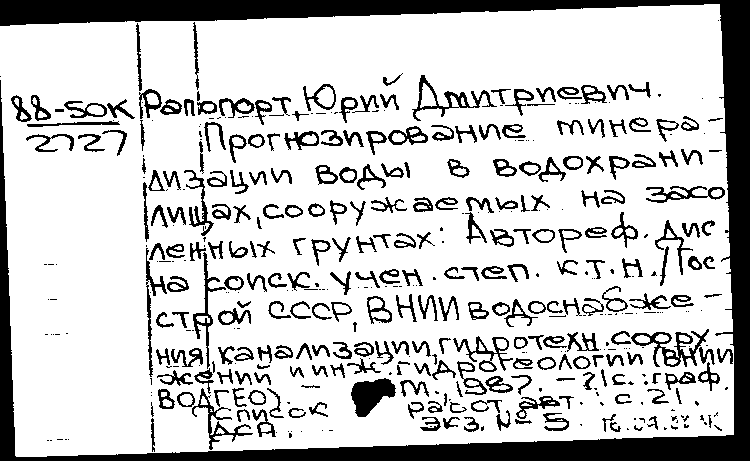 88-50К Рапопорт, Юрий Дмитриевич.
2727 Прогнозирование минера-
лизации воды в водохрани-
лищах, сооружаемых на засо
ленных грунтах: Автореф. дис.
на соиск. учен. степ. к.т.н. / Гос-
строй СССР, ВНИИ водоснабже-
ния, канализации, гидротехн. соору-
жений и инж. гидрогеологии (ВНИИ
ВОДГЕО). - М., 1987. - 21 с. : граф.
Список работ авт.: с. 21.
ДСП. Экз. № 5